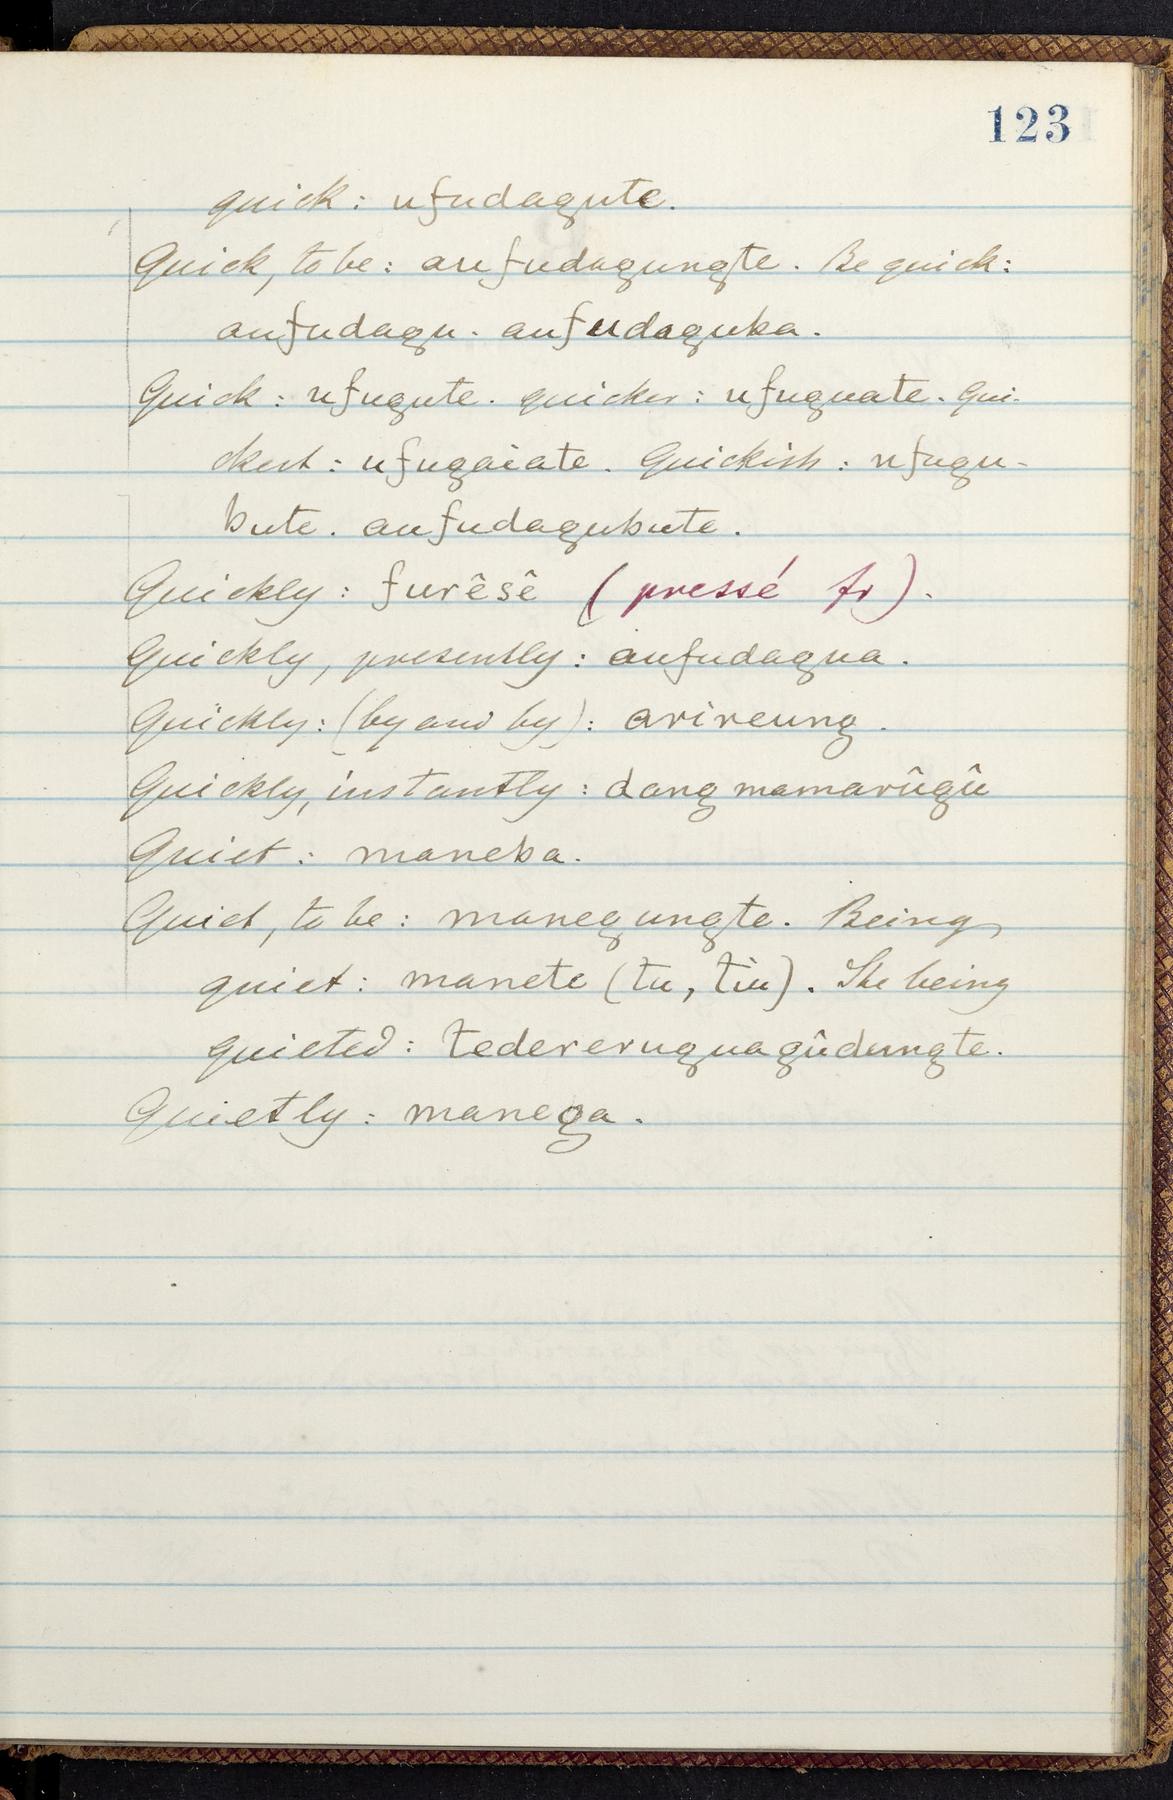 123
quick: ufudagute.
Quick, to be: aufudagungte. Be quick:
aufudagu. aufudaguba.
Quick: ufugute. quicker: ufuguate. Qui-
ckest: ufugaiate. Quickish: ufugu-
bute. aufudagubute.
Quickly: furêsê (pressé fr).
Quickly, presently: aufudagua.
Quickly: (by and by): arireung.
Quickly, instantly: dang mamarûgû
Quiet: maneba.
Quiet, to be: manegungte. Being
quiet: manete (tu, tiu). She being
quieted: tedereruguagûdungte.
Quietly: manega.